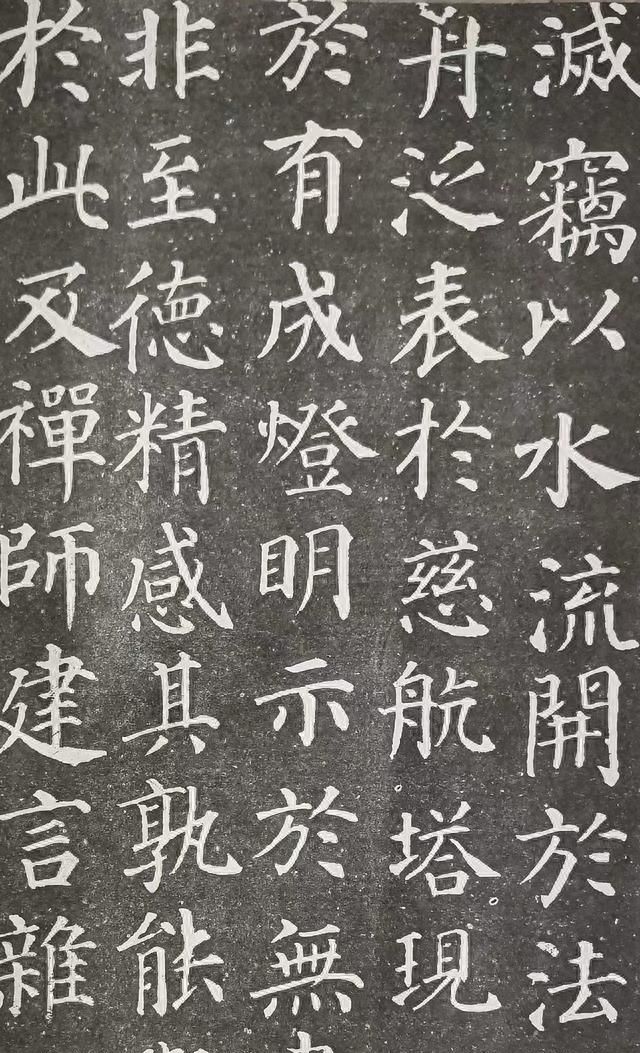 滅竊以水流開於法
舟泛表於慈航塔現
於有成燈明示於無
非至德精感其孰能
於此及禪師建言雜